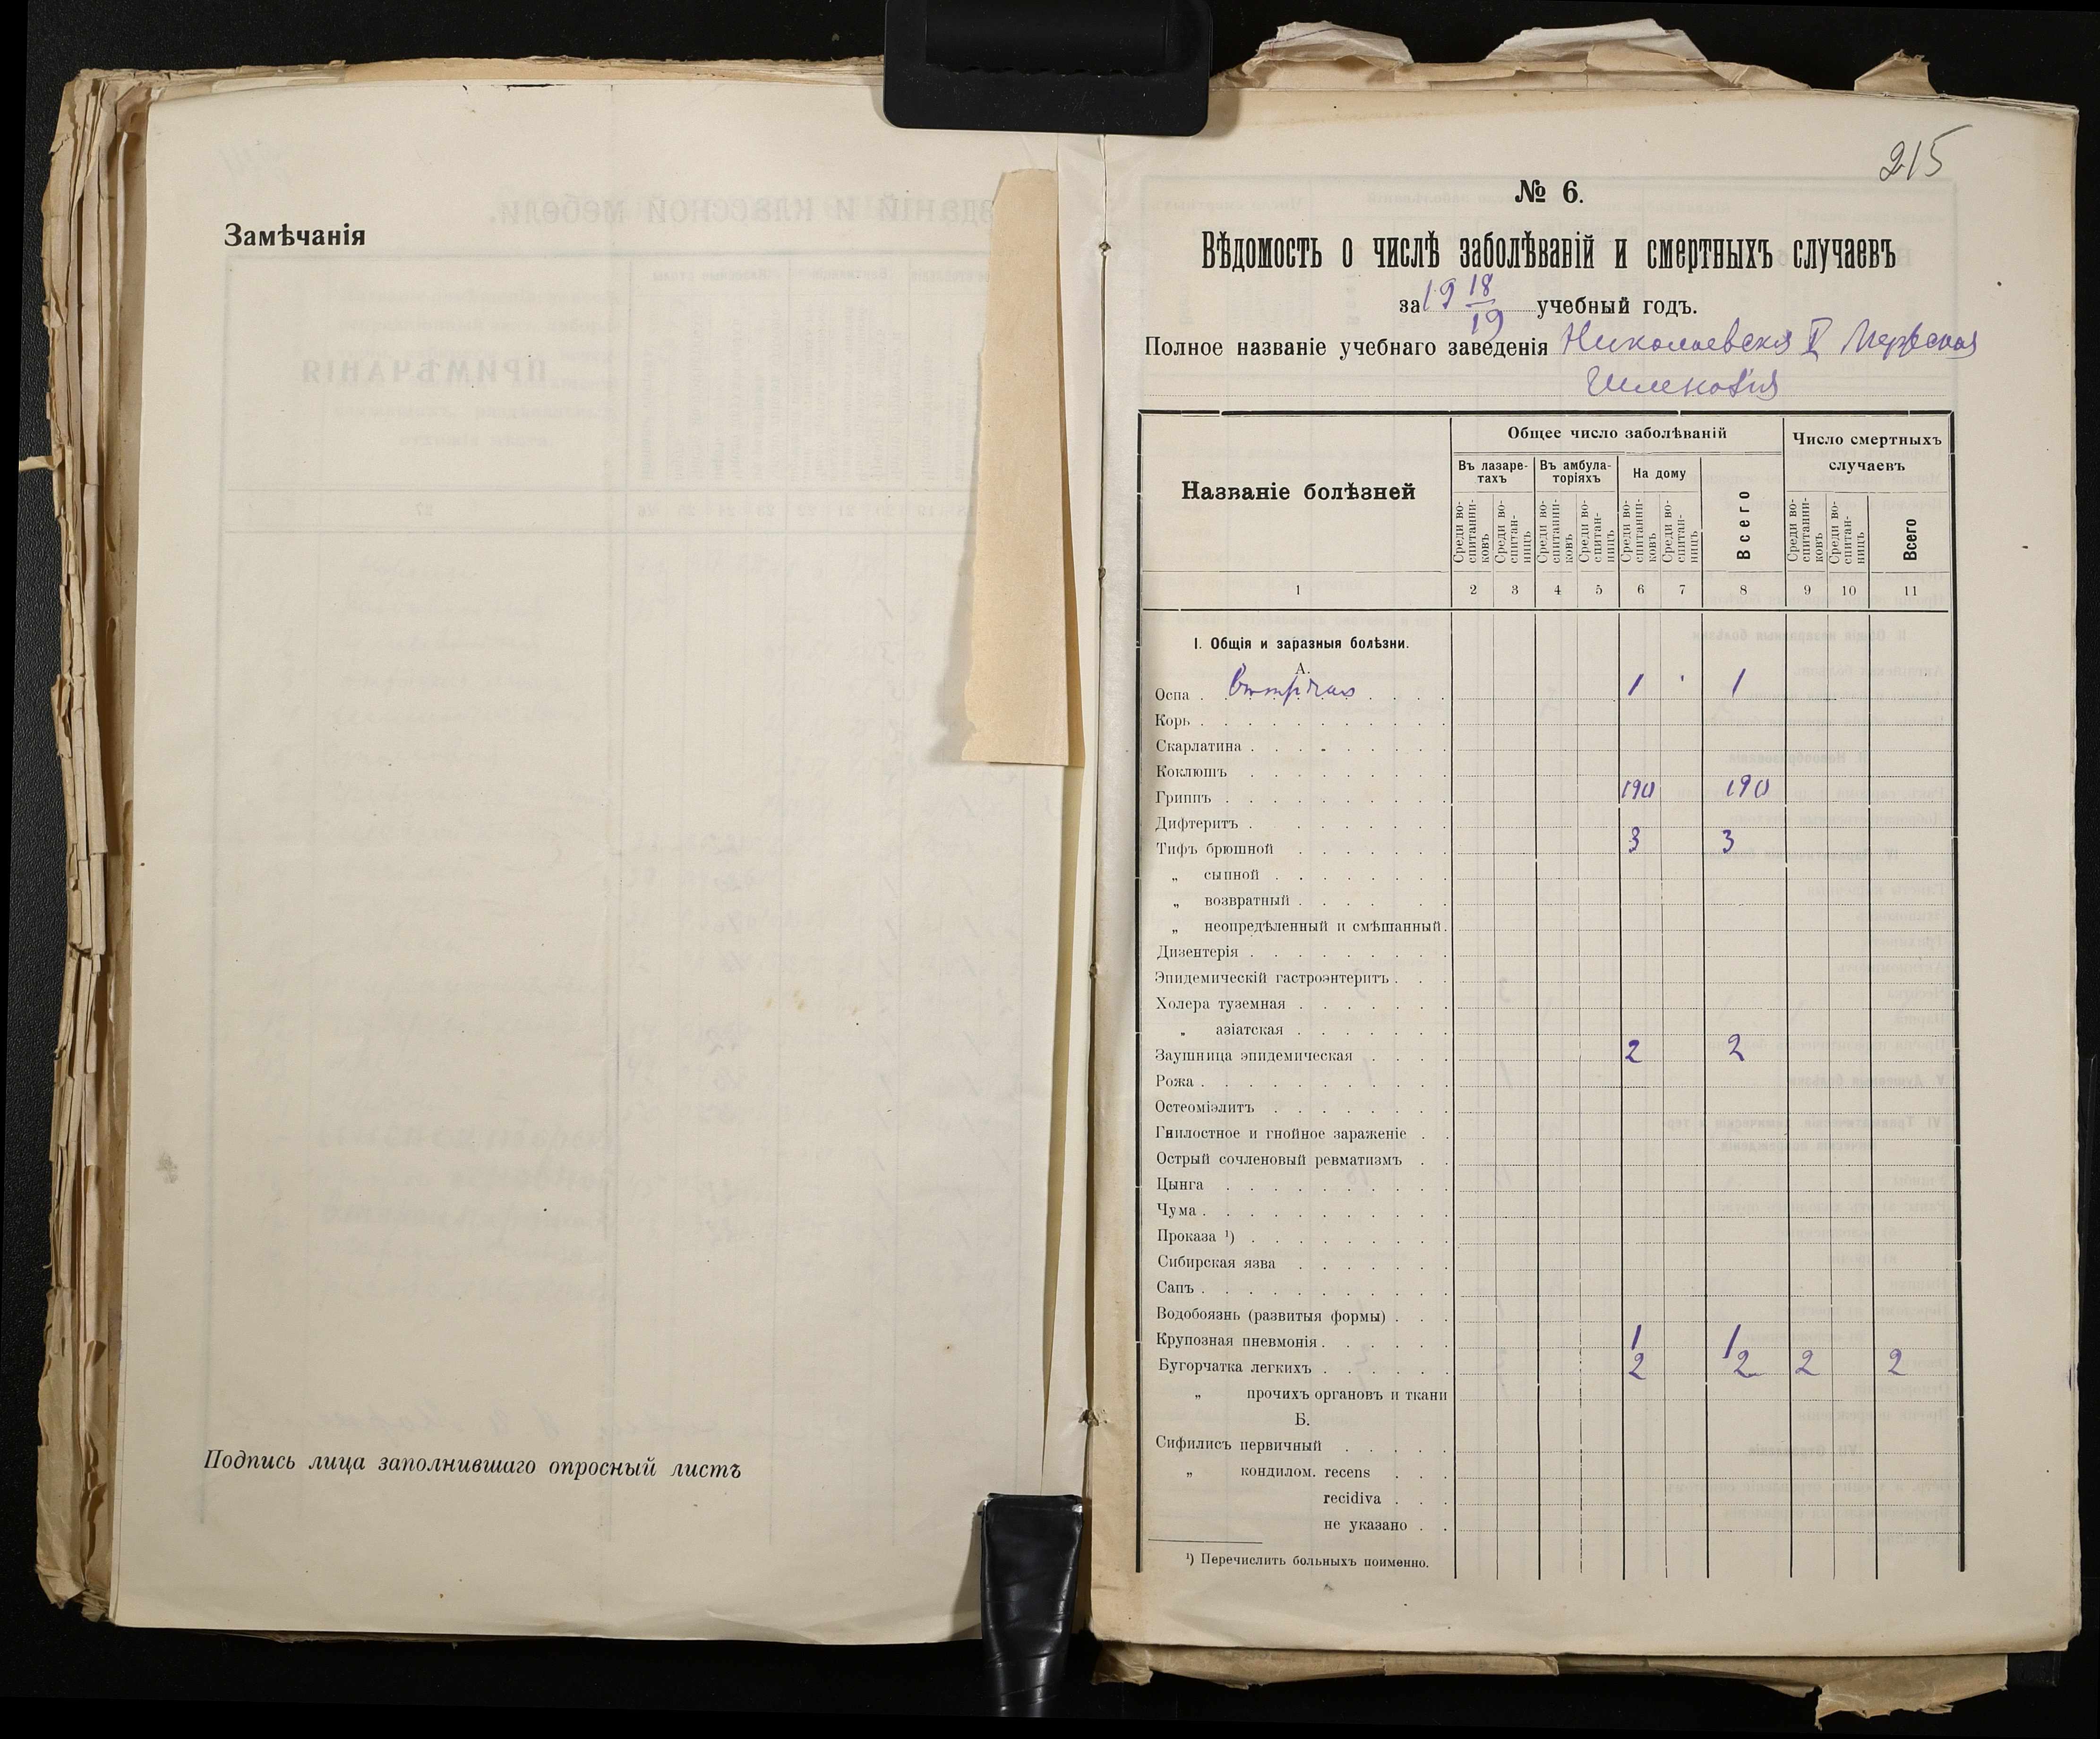 Замѣчанія
Подпись лица заполнившаго опросный листъ
215
№ 6.
Вѣдомость о числѣ заболѣваній и смертныхъ случаевъ
за 19 18/19 учебный годъ.
Полное названіе учебнаго заведенія Николаевская II Мужская
Гимназія
Названіе болѣзней
Общее число заболѣваній
Число смертныхъ случаевъ
Въ лазаре-тахъ
Въ амбула-торіяхъ
На дому
Всего
Среди во-спитанни-ковъ
Среди во-спитан-ницъ
Среди во-спитанни-ковъ
Среди во-спитан-ницъ
Среди во-спитанни-ковъ
Среди во-спитан-ницъ
Среди во-спитанни-ковъ
Среди во-спитан-ницъ
Всего
1 2 3 4 5 6 7 8 9 10 11
I. Общія и заразныя болѣзни.
А.
Оспа . . . . 1 1
Корь
Скарлатина
Коклюшъ
Гриппъ 190 190
Дифтеритъ
Тифъ брюшной 3 3
„ сыпной
„ возвратный
„ неопредѣленный и смѣшанный.
Дизентерія
Эпидемическій гастроэнтеритъ
Холера туземная
„ азіатская
Заушница эпидемическая 2 2
Рожа
Остеоміэлитъ
Гнилостное и гнойное зараженіе
Острый сочленовый ревматизмъ
Цынга
Чума
Проказа ¹)
Сибирская язва
Сапъ
Водобоязнь (развитыя формы)
Крупозная пневмонія 1 1
Бугорчатка легкихъ 2 2 2 2
„ прочихъ органовъ и ткани
Б.
Сифилисъ первичный
„ кондилом. recens
recidiva
не указано
¹) Перечислить больныхъ поименно.